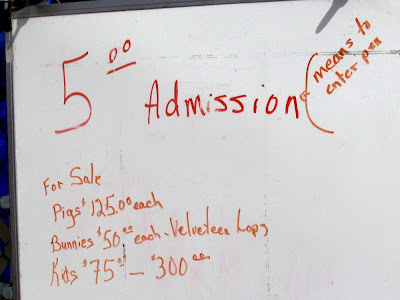 5 00 Admission means to
enter pen
For Sale
Pigs $125.00 each
Bunnies $50.00 each - Velveteen Lops
Kits $75.00 - $300